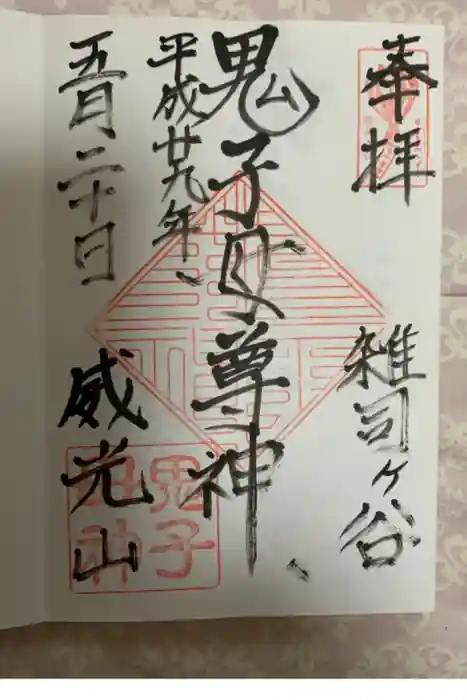 奉拝
雑司ヶ谷
鬼子母尊神
平成廿九年
五月二十日
威光山
鬼子
母神